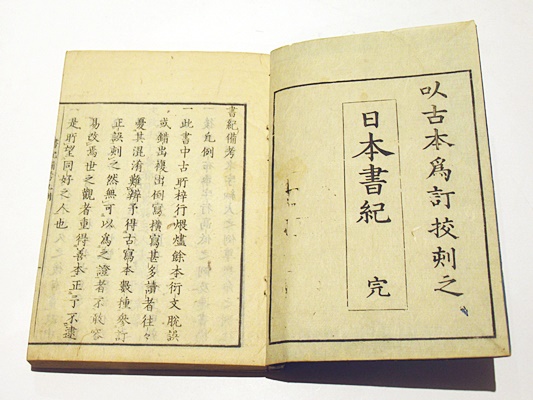 以古本爲訂挍刺之
日本書紀
完
書紀備考
凡例
一此書中古所梓行煨爐餘本衍文脫誤
或錯出複出倒寫横寫甚多讀者往々
憂其混淆難辨予得古寫本數種參訂
正誤刻之然無可以爲之證者不敢容
易改焉世之觀者重得善本正予不逮
是所望同好之人也
一